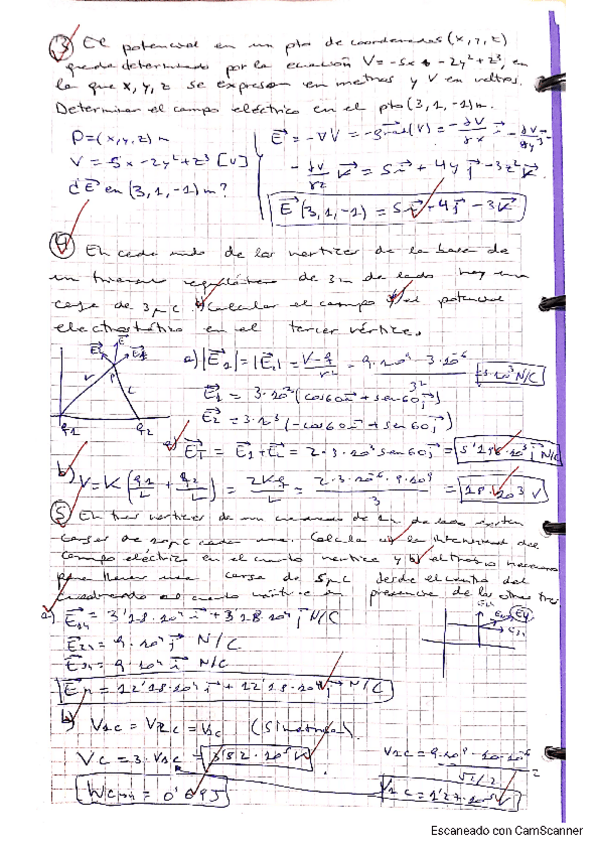 ③ El potencial en un pto de coordenadas (x, y, z)
queda determinado por la ecuación V = -5x + -2y² + z³, en
la que x, y, z se expresan en metros y V en voltios.
Determinar el campo eléctrico en el pto (3, 1, -1) m.
P = (x, y, z) m
V = 5x - 2y² + z³ [V]
d E⃗ en (3, 1, -1) m?
E⃗ = -∇V = -grad(V) =
= 5i⃗ + 4y j⃗ - 3z² k⃗
E⃗ (3, 1, -1) = 5i⃗ + 4j⃗ - 3k⃗
④ En cada uno de los vértices de la base de
un de 3m de lado hay una
carga de 3μC. Calcular el campo y el potencial
electrostático en el tercer vértice.
a) |E⃗1| = |E⃗2| = = 9·10⁹·3·10⁻⁶ / 3² = 3·10³ N/C
E⃗1 = 3·10³ (cos60 i⃗ + sen60 j⃗)
E⃗2 = 3·10³ (-cos60 i⃗ + sen60 j⃗)
E⃗T = E⃗1 + E⃗2 = 2·3·10³ sen60 j⃗ = 5'196·10³ j⃗ N/C
q1 q2
b) V = K (q1/L + q2/L) = 2Kq/L = 2·3·10⁻⁶·9·10⁹ / 3 = 18·10³ V
⑤ En tres vértices de un cuadrado de 1m de lado existen
cargas de 10μC cada una. Calcula a) la intensidad del
campo eléctrico en el cuarto vértice y b) el trabajo necesario
para llevar una carga de 5μC desde el centro del
cuadrado al cuarto vértice en presencia de las otras tres
a) E⃗14 = 3'18·10⁴ i⃗ + 3'18·10⁴ j⃗ N/C
E⃗24 = 9·10⁴ j⃗ N/C
E⃗34 = 9·10⁴ i⃗ N/C
E⃗4 = 12'18·10⁴ i⃗ + 12'18·10⁴ j⃗ N/C
b) V1c = V2c = V3c (Simetría)
Vc = 3·V1c = 3'82·10⁵ V
V1c = 9·10⁹·10·10⁻⁶ / √2/2 =
V1c = 1'27·10⁵ V
= 0'695
Escaneado con CamScanner